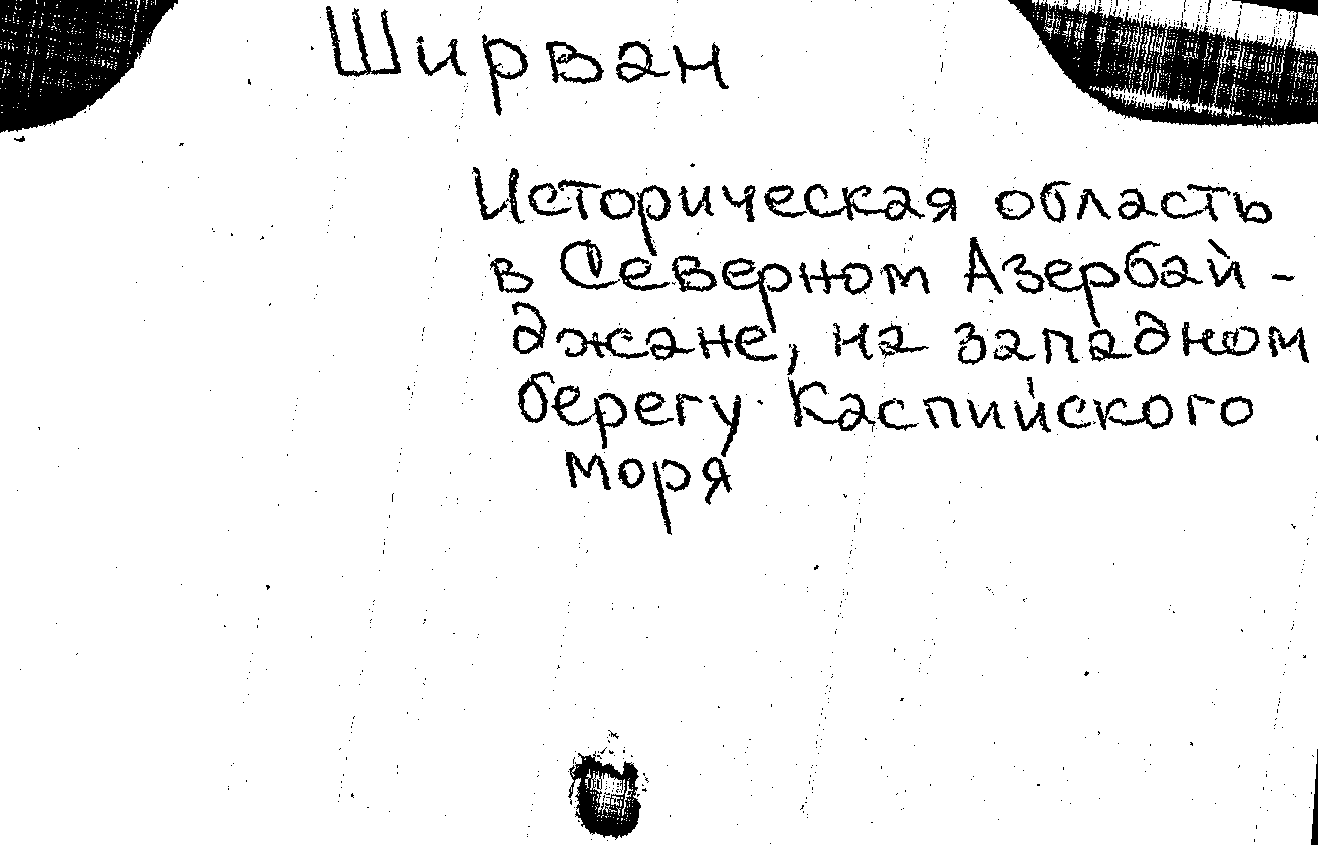 Ширван
Историческая область
в Северном Азербай-
джане, на западном
берегу Каспийского
моря